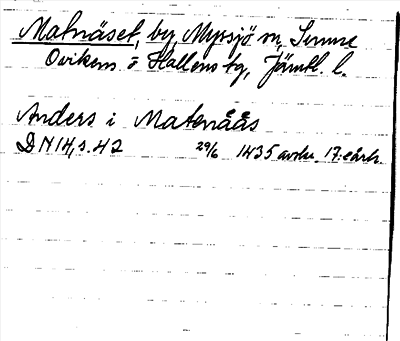 Matnäset, by, Myssjö sn, Sunne
Ovikens o Hallens tg, Jämtl. l.
Anders i Matenåås
DN 14, s. 42 29/6 1435 avskr. 17:e årh.